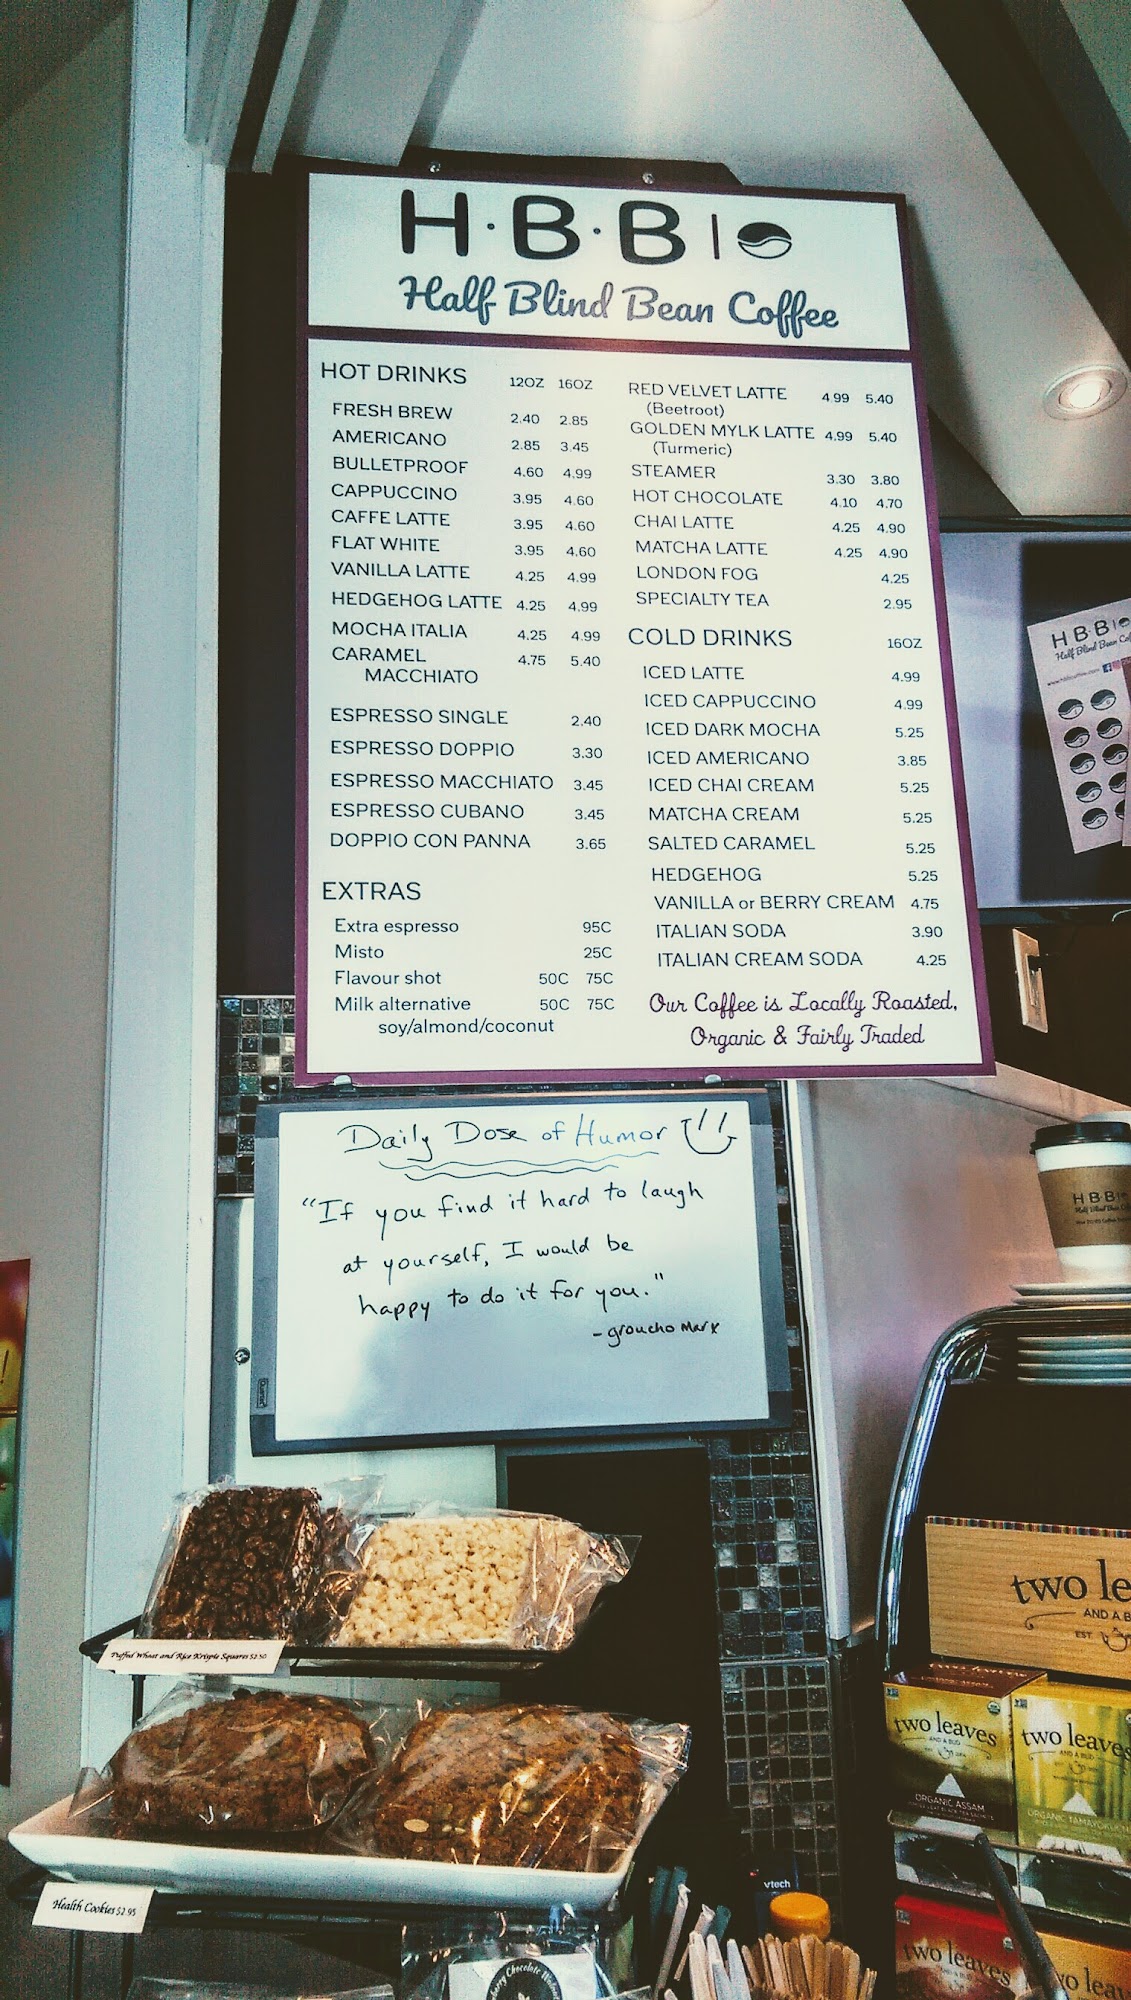 H·B·B|
Half Blind Bean Coffee
HOT DRINKS 12OZ 16OZ
FRESH BREW 2.40 2.85
AMERICANO 2.85 3.45
BULLETPROOF 4.60 4.99
CAPPUCCINO 3.95 4.60
CAFFE LATTE 3.95 4.60
FLAT WHITE 3.95 4.60
VANILLA LATTE 4.25 4.99
HEDGEHOG LATTE 4.25 4.99
MOCHA ITALIA 4.25 4.99
CARAMEL 4.75 5.40
MACCHIATO
ESPRESSO SINGLE 2.40
ESPRESSO DOPPIO 3.30
ESPRESSO MACCHIATO 3.45
ESPRESSO CUBANO 3.45
DOPPIO CON PANNA 3.65
EXTRAS
Extra espresso 95C
Misto 25C
Flavour shot 50C 75C
Milk alternative 50C 75C
soy/almond/coconut
RED VELVET LATTE 4.99 5.40
(Beetroot)
GOLDEN MYLK LATTE 4.99 5.40
(Turmeric)
STEAMER 3.30 3.80
HOT CHOCOLATE 4.10 4.70
CHAI LATTE 4.25 4.90
MATCHA LATTE 4.25 4.90
LONDON FOG 4.25
SPECIALTY TEA 2.95
COLD DRINKS 16OZ
ICED LATTE 4.99
ICED CAPPUCCINO 4.99
ICED DARK MOCHA 5.25
ICED AMERICANO 3.85
ICED CHAI CREAM 5.25
MATCHA CREAM 5.25
SALTED CARAMEL 5.25
HEDGEHOG 5.25
VANILLA or BERRY CREAM 4.75
ITALIAN SODA 3.90
ITALIAN CREAM SODA 4.25
Our Coffee is Locally Roasted,
Organic & Fairly Traded
H·B·B|
Half Blind Bean
Daily Dose of Humor
"If you find it hard to laugh
at yourself, I would be
happy to do it for you."
- groucho Marx
Quartet
H·B·B|
Half Blind Bean
Puffed Wheat and Rice Krispie Squares $2.50
Health Cookies $2.95
two le
AND A B
EST
two leaves
AND A BUD
ORGANIC ASSAM
two leaves
AND A BUD
ORGANIC
vtech
two leaves
Chocolate